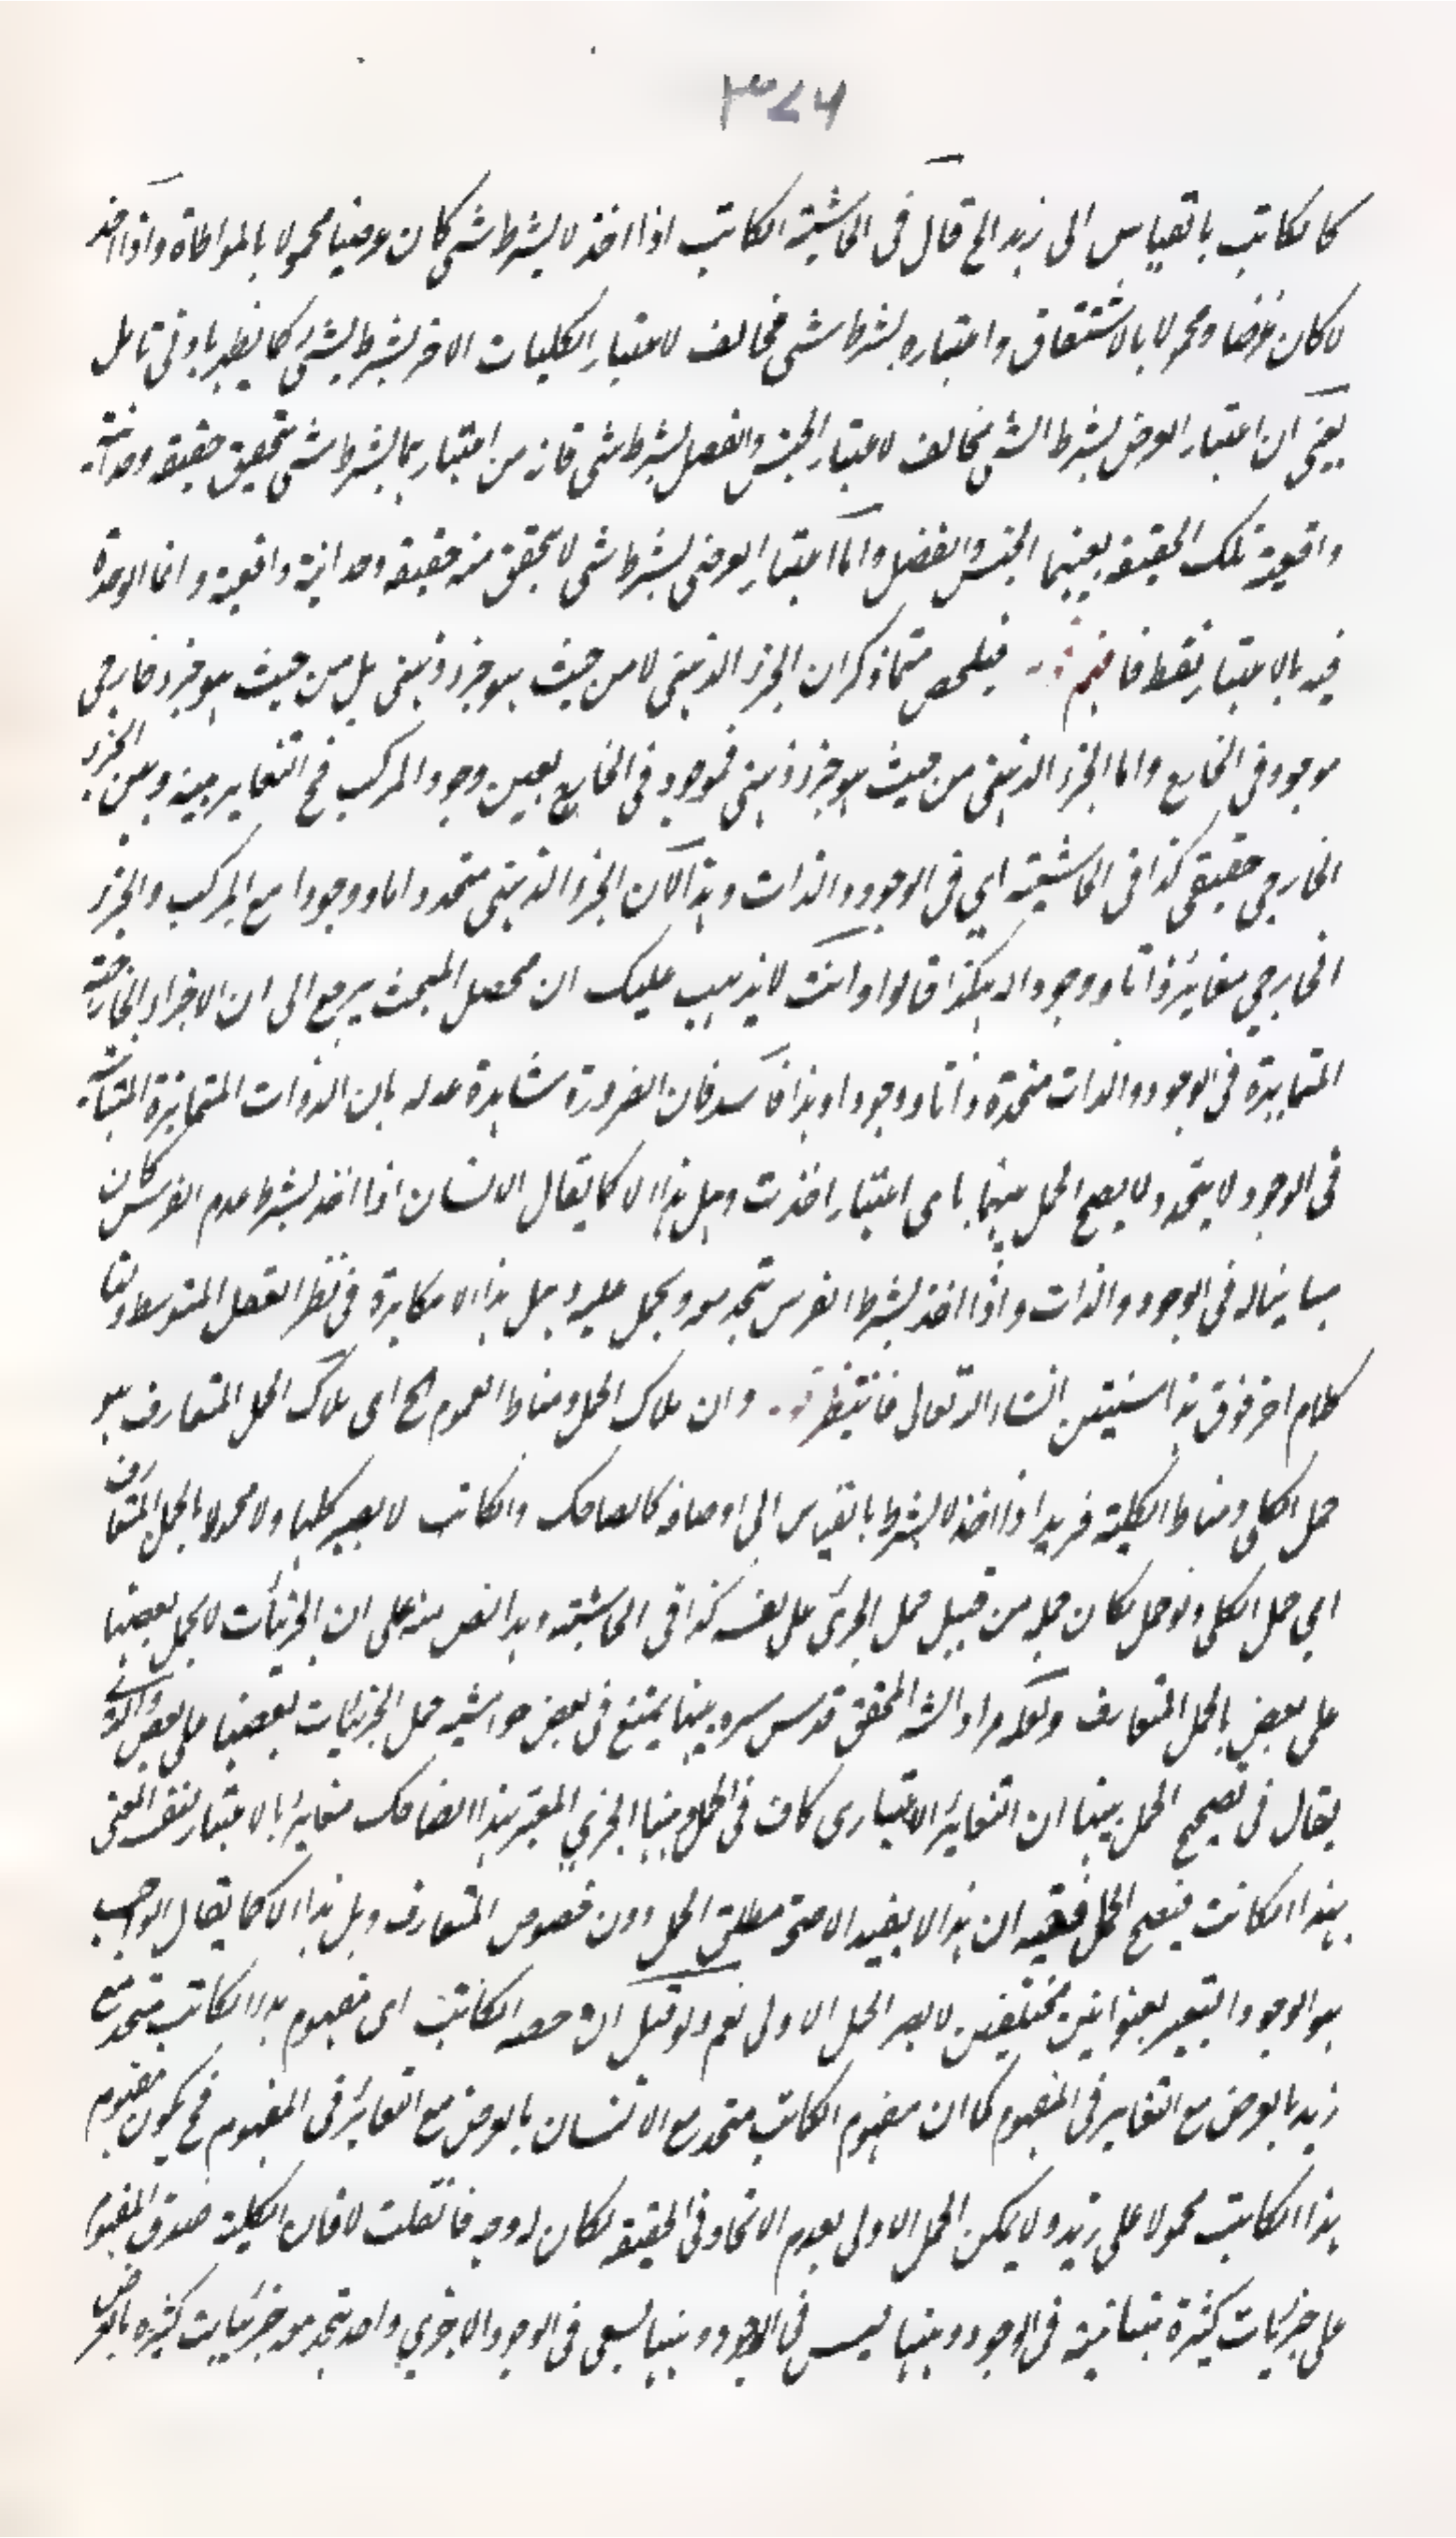 ٣٧٦
كالكاتب بالقياس الى زيد الخ قال فى الحاشية الكاتب اذا اخذ لا بشرط شى كان عرضيا محمولا بالمواطاة واذا اخذ
لا كان عرضا ومحمولا بالاشتقاق واعتباره بشرط شى مخالف لاعتبار الكليات الاخر بشرط شئ كما يظهر بادنى تامل
يعنى ان اعتبار العرض بشرط الشى مخالف لاعتبار الجنس والفصل بشرط شى فانه من اعتبارهما بشرط شى تحقق حقيقة وحدانية
واقعية تلك الحقيقة بعينها الجنس والفصل واما اعتبار العرضى بشرط شى لا يتحقق منه حقيقة وحدانية واقعية وانما الوحدة
فيه بالاعتبار فقط فافهم فيلخص مما ذكر ان الجزء الذهنى لا من حيث هو جزء ذهنى بل من حيث هو جزء خارجى
موجود فى الخارج واما الجزء الذهنى من حيث هو جزء ذهنى فموجود فى الخارج بعين وجود المركب فح التغاير بينه وبين الجزء
الخارجى حقيقى كذا فى الحاشية اى فى الوجود والذات وهذا لان الجزء الذهنى متحد ذاتا ووجودا مع المركب والجزء
الخارجى مغاير ذاتا ووجودا له هكذا قالوا وانت لا يذهب عليك ان محصل المبحث يرجع الى ان الاجزاء الخارجية
المتمايزة فى الوجود والذات متحدة ذاتا ووجودا وهذا فاسد فان الضرورة شاهدة عدله بان الذوات المتمايزة المتباينة
فى الوجود لا يتحد ولا يصح الحمل بينهما باى اعتبار اخذت وهل هذا الا كما يقال الانسان اذا اخذ بشرط عدم الفرس كان
مباينا له فى الوجود والذات واذا اخذ بشرط الفرس يتحد معه ويحمل عليه وهل هذا الا مكابرة فى نظر العقل المتوسط ولنا
كلام اخر فوق هذا سنبين انشاء الله تعالى فانتظر وان ملاك الحمل ومناط العموم الخ اى ملاك الحمل المتعارف هو
حمل الكلى ومناط الكلية فزيد اذا اخذ لا بشرط بالقياس الى اوصافه كالضاحك والكاتب لا يصير كليا ولا محمولا بالحمل المتعارف
اى حمل الكلى ولو حمل لكان حمله من قبيل حمل الجزئى على نفسه كذا فى الحاشية وهذا نص منه على ان الجزئيات لا يحمل بعضها
على بعض بالحمل المتعارف ولعله مراد الشه المحقق قدس سره بينا يمتنع فى بعض حواشيه حمل الجزئيات بعضها على بعض
يقال فى تصحيح الحمل بينها ان التغاير الاعتبارى كاف فى الحمل وبينا الجزئى المعتبر بهذا الضاحك مغاير بالاعتبار لنفس المعنى
بهذا الكاتب فيصح الحمل ففيه ان هذا لا يفيد الا صحة مطلق الحمل دون خصوص المتعارف وهل هذا الا كما يقال الواجب
هو الوجود والتعبير بعنوانين مختلفين لا يضر الحمل الاولى نعم ولو قيل ان حصة الكاتب اى مفهوم هذا الكاتب متحد مع
زيد بالعرض مع التغاير فى المفهوم كما ان مفهوم الكاتب متحد مع الانسان بالعرض مع التغاير فى المفهوم فح يكون مفهوم
هذا الكاتب محمولا على زيد ولا يمكن الحمل الاولى لعدم الاتحاد فى الحقيقة لكان له وجه فان قلت لا فان الكلية صدق المفهوم
على جزئيات كثيرة متباينة فى الوجود وهنا ليس فى الوجود وبينا ليس فى الوجود الا جزئى واحد يتحد معه جزئيات كثيرة بالعرض